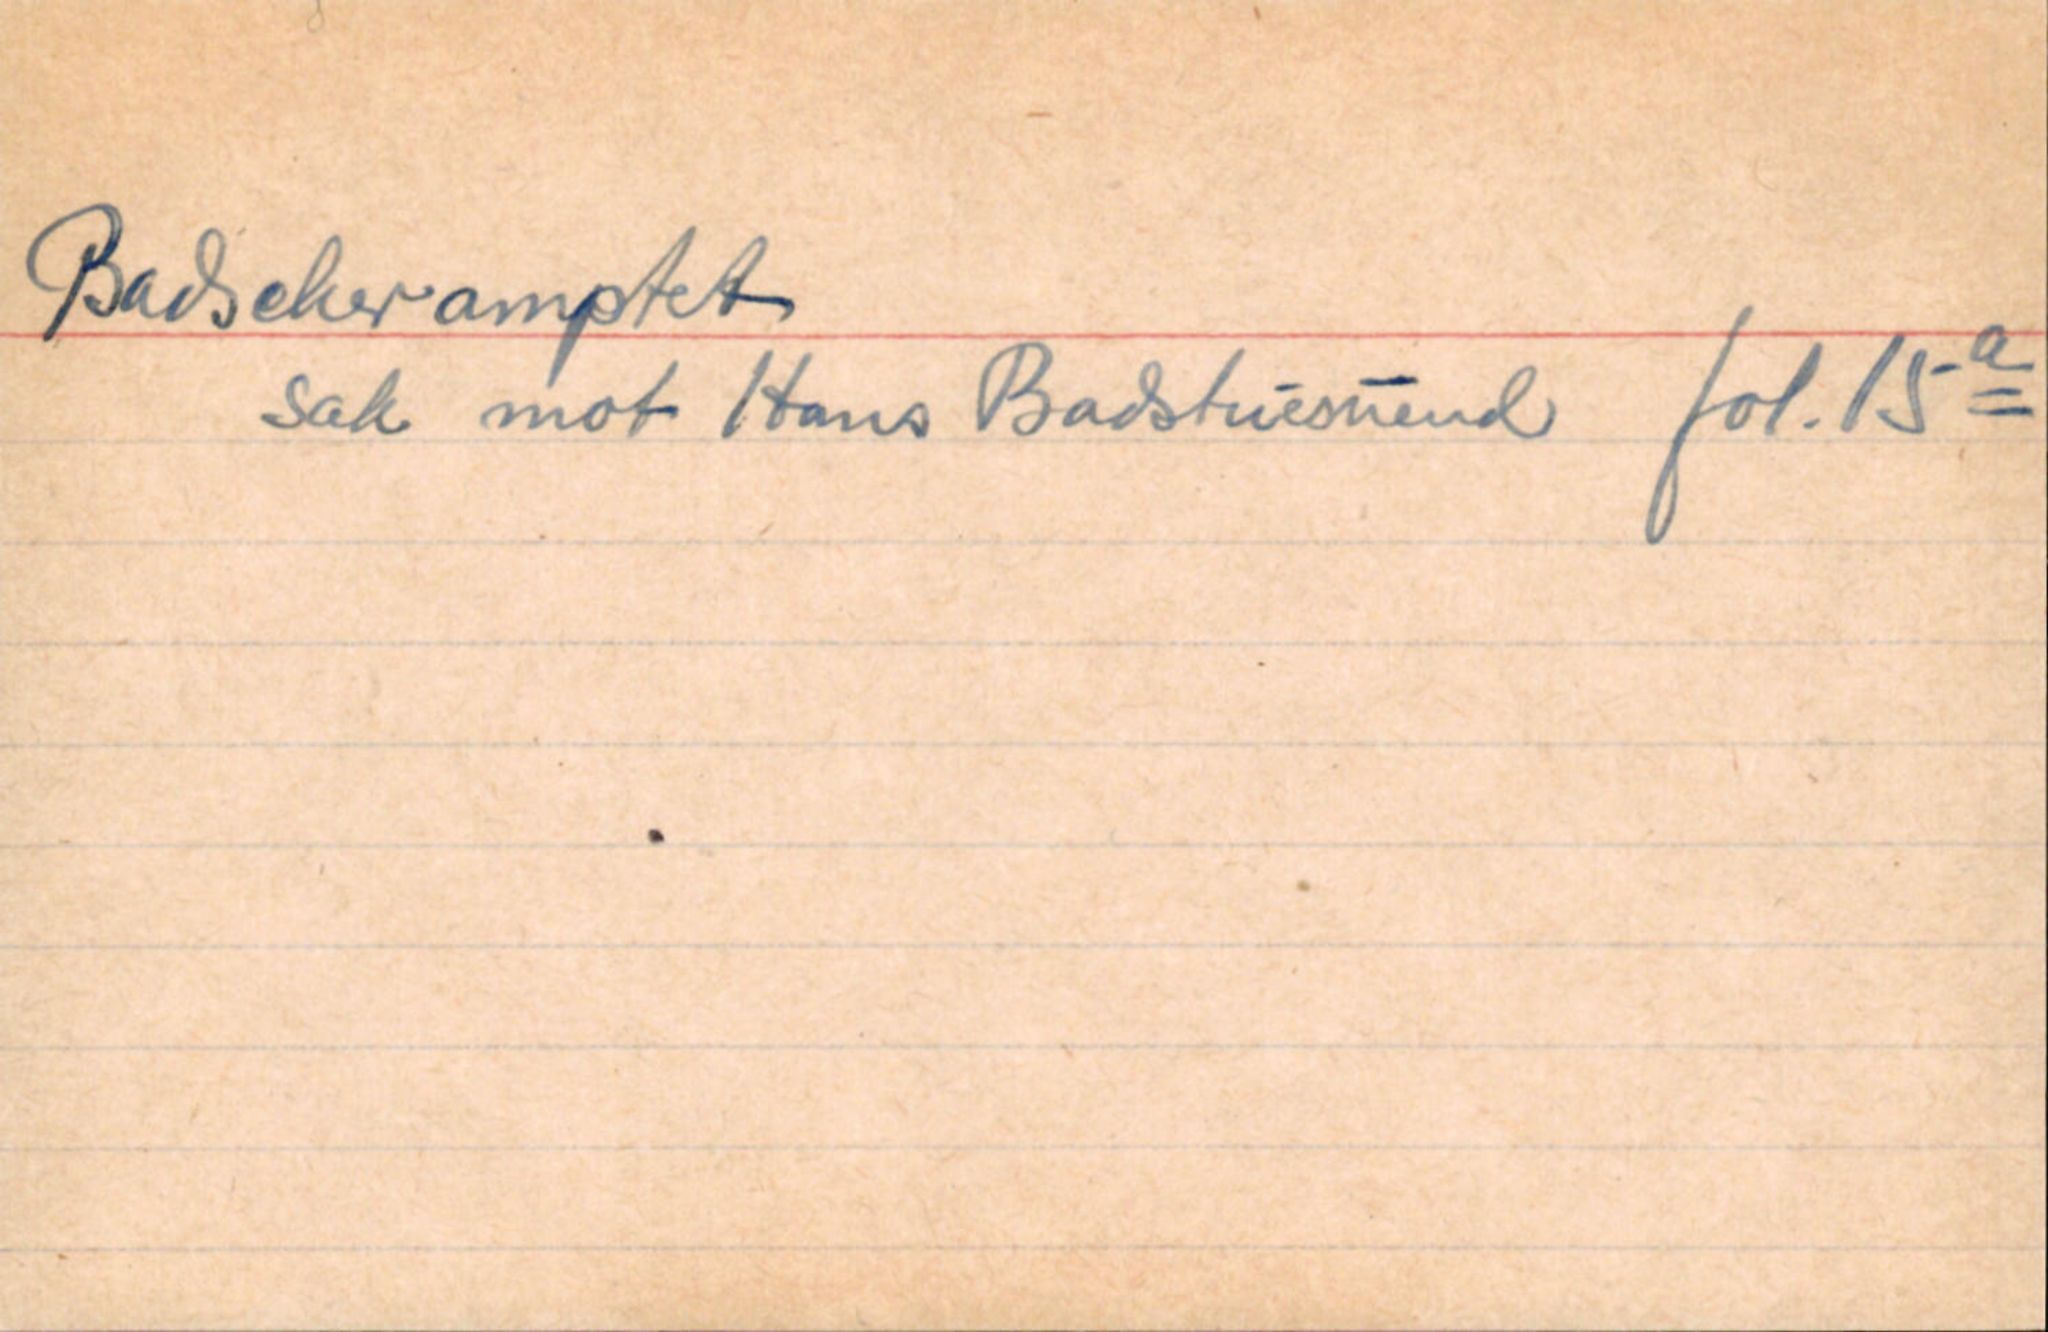 Badscher amptet
sak mot Hans Badstuesuend fol. 15a